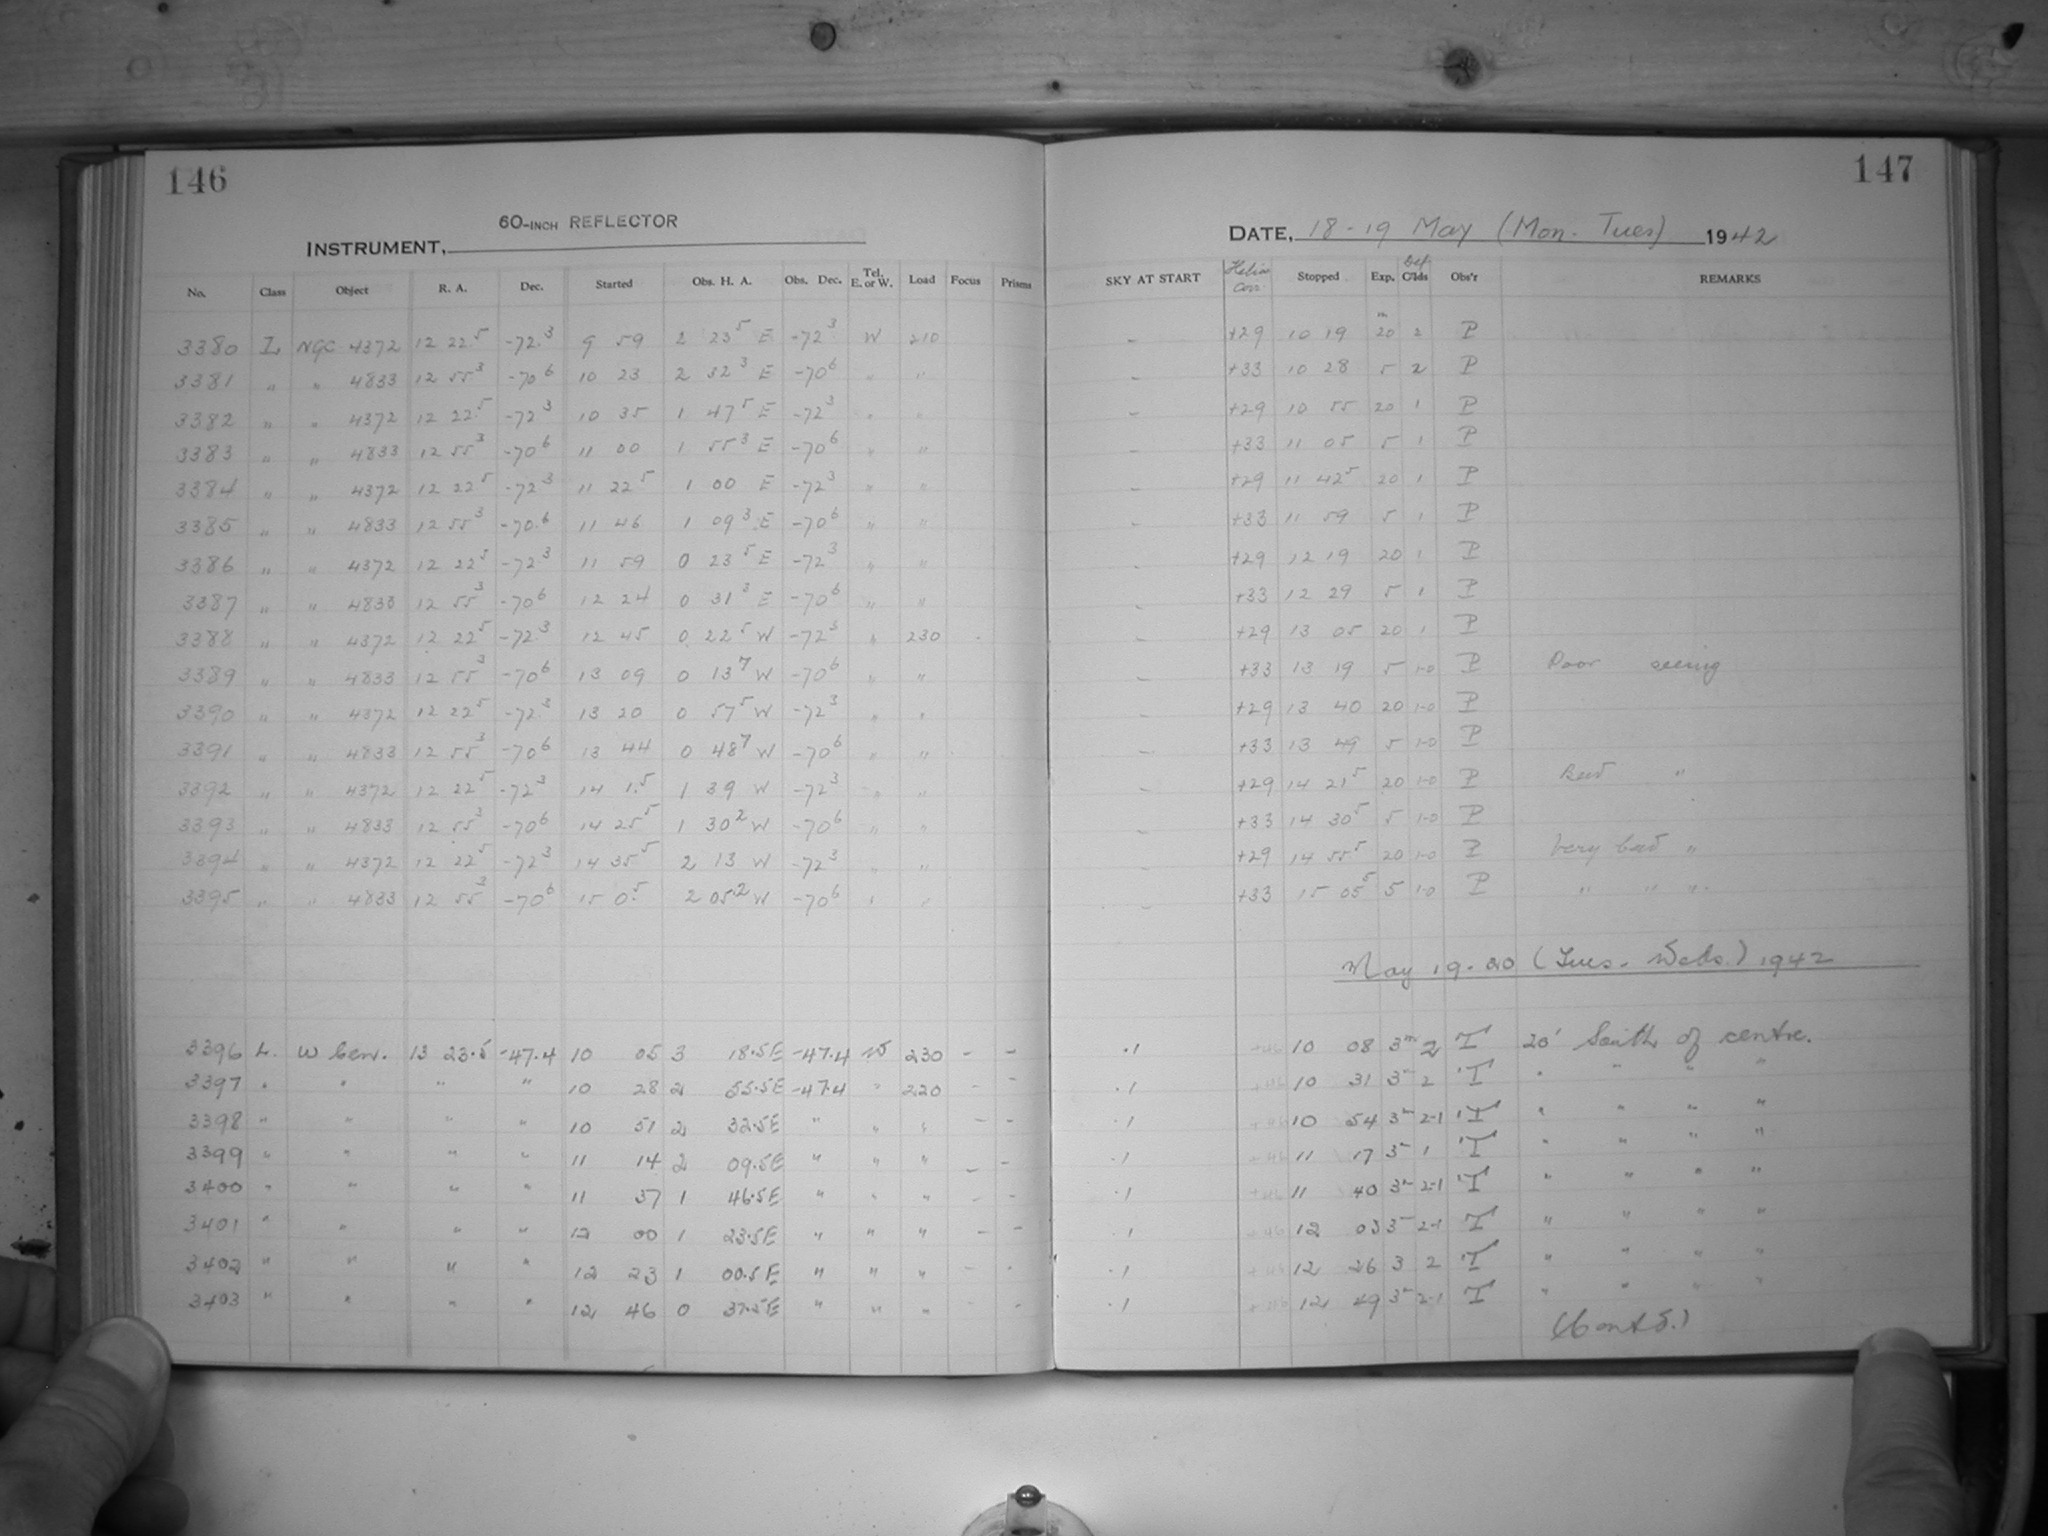 146
147
60-INCH REFLECTOR
INSTRUMENT,
DATE, 18-19 May (Mon. Tues) 1942
No. Class Object R. A. Dec. Started Obs. H. A. Obs. Dec. Tel. E. or W. Load Focus Prisms SKY AT START Helio Corr Stopped Exp. Def C'lds Obs'r REMARKS
3380 L NGC 4372 12 22.5 -72.3 9 59 2 23.5 E -72.3 W 210 - +29 10 19 20m 2 P
3381 " " 4833 12 55.3 -70.6 10 23 2 32.3 E -70.6 " " - +33 10 28 5 2 P
3382 " " 4372 12 22.5 -72.3 10 35 1 47.5 E -72.3 " " - +29 10 55 20 1 P
3383 " " 4833 12 55.3 -70.6 11 00 1 55.3 E -70.6 " " - +33 11 05 5 1 P
3384 " " 4372 12 22.5 -72.3 11 22.5 1 00 E -72.3 " " - +29 11 42.5 20 1 P
3385 " " 4833 12 55.3 -70.6 11 46 1 09.3 E -70.6 " " - +33 11 59 5 1 P
3386 " " 4372 12 22.5 -72.3 11 59 0 23.5 E -72.3 " " - +29 12 19 20 1 P
3387 " " 4833 12 55.3 -70.6 12 24 0 31.3 E -70.6 " " - +33 12 29 5 1 P
3388 " " 4372 12 22.5 -72.3 12 45 0 22.5 W -72.3 " 230 - +29 13 05 20 1 P
3389 " " 4833 12 55.3 -70.6 13 09 0 13.7 W -70.6 " " - +33 13 19 5 1-0 P Poor seeing
3390 " " 4372 12 22.5 -72.3 13 20 0 57.5 W -72.3 " " - +29 13 40 20 1-0 P
3391 " " 4833 12 55.3 -70.6 13 44 0 48.7 W -70.6 " " - +33 13 49 5 1-0 P
3392 " " 4372 12 22.5 -72.3 14 1.5 1 39 W -72.3 " " - +29 14 21.5 20 1-0 P Bad "
3393 " " 4833 12 55.3 -70.6 14 25.5 1 30.2 W -70.6 " " - +33 14 30.5 5 1-0 P
3394 " " 4372 12 22.5 -72.3 14 35.5 2 13 W -72.3 " " - +29 14 55.5 20 1-0 P Very bad "
3395 " " 4833 12 55.3 -70.6 15 0.5 2 05.2 W -70.6 " " - +33 15 05.5 5 1-0 P " " "
May 19-20 (Tues. Weds.) 1942
3396 L. W Cen. 13 23.5 -47.4 10 05 3 18.5E -47.4 W 230 - - .1 +46 10 08 3m 2 T 20' South of centre.
3397 " " " " 10 28 2 55.5E -47.4 " 220 - - .1 +46 10 31 3m 2 T " " " "
3398 " " " " 10 51 2 32.5E " " " - - .1 +46 10 54 3m 2-1 T " " " "
3399 " " " " 11 14 2 09.5E " " " - - .1 +46 11 17 3m 1 T " " " "
3400 " " " " 11 37 1 46.5E " " " - - .1 +46 11 40 3m 2-1 T " " " "
3401 " " " " 12 00 1 23.5E " " " - - .1 +46 12 03 3m 2-1 T " " " "
3402 " " " " 12 23 1 00.5E " " " - - .1 +46 12 26 3 2 T " " " "
3403 " " " " 12 46 0 37.5E " " " - - .1 +46 12 49 3m 2-1 T " " " "
(Contd.)